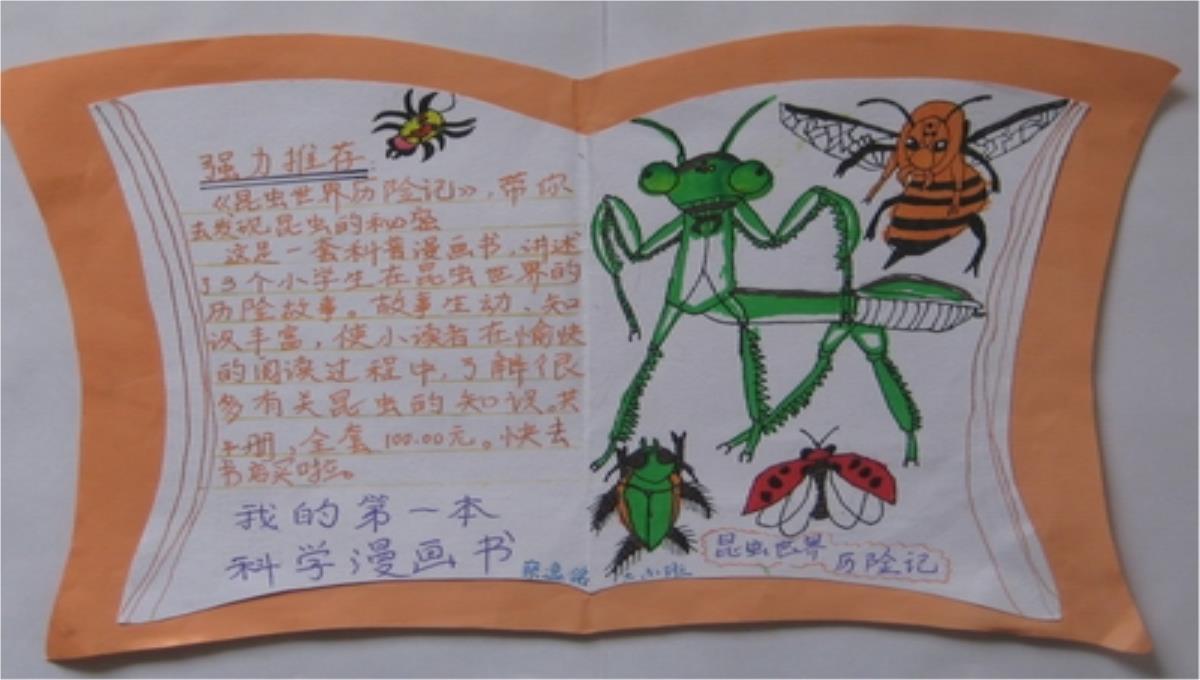 强力推荐:
《昆虫世界历险记》,带你
去发现昆虫的秘密
这是一套科普漫画书,讲述
了3个小学生在昆虫世界的
历险故事。故事生动、知
识丰富,使小读者在愉快
的阅读过程中,了解很
多有关昆虫的知识。共
册,全套100.00元。快去
书店买啦。
我的第一本
科学漫画书
昆虫世界
历险记